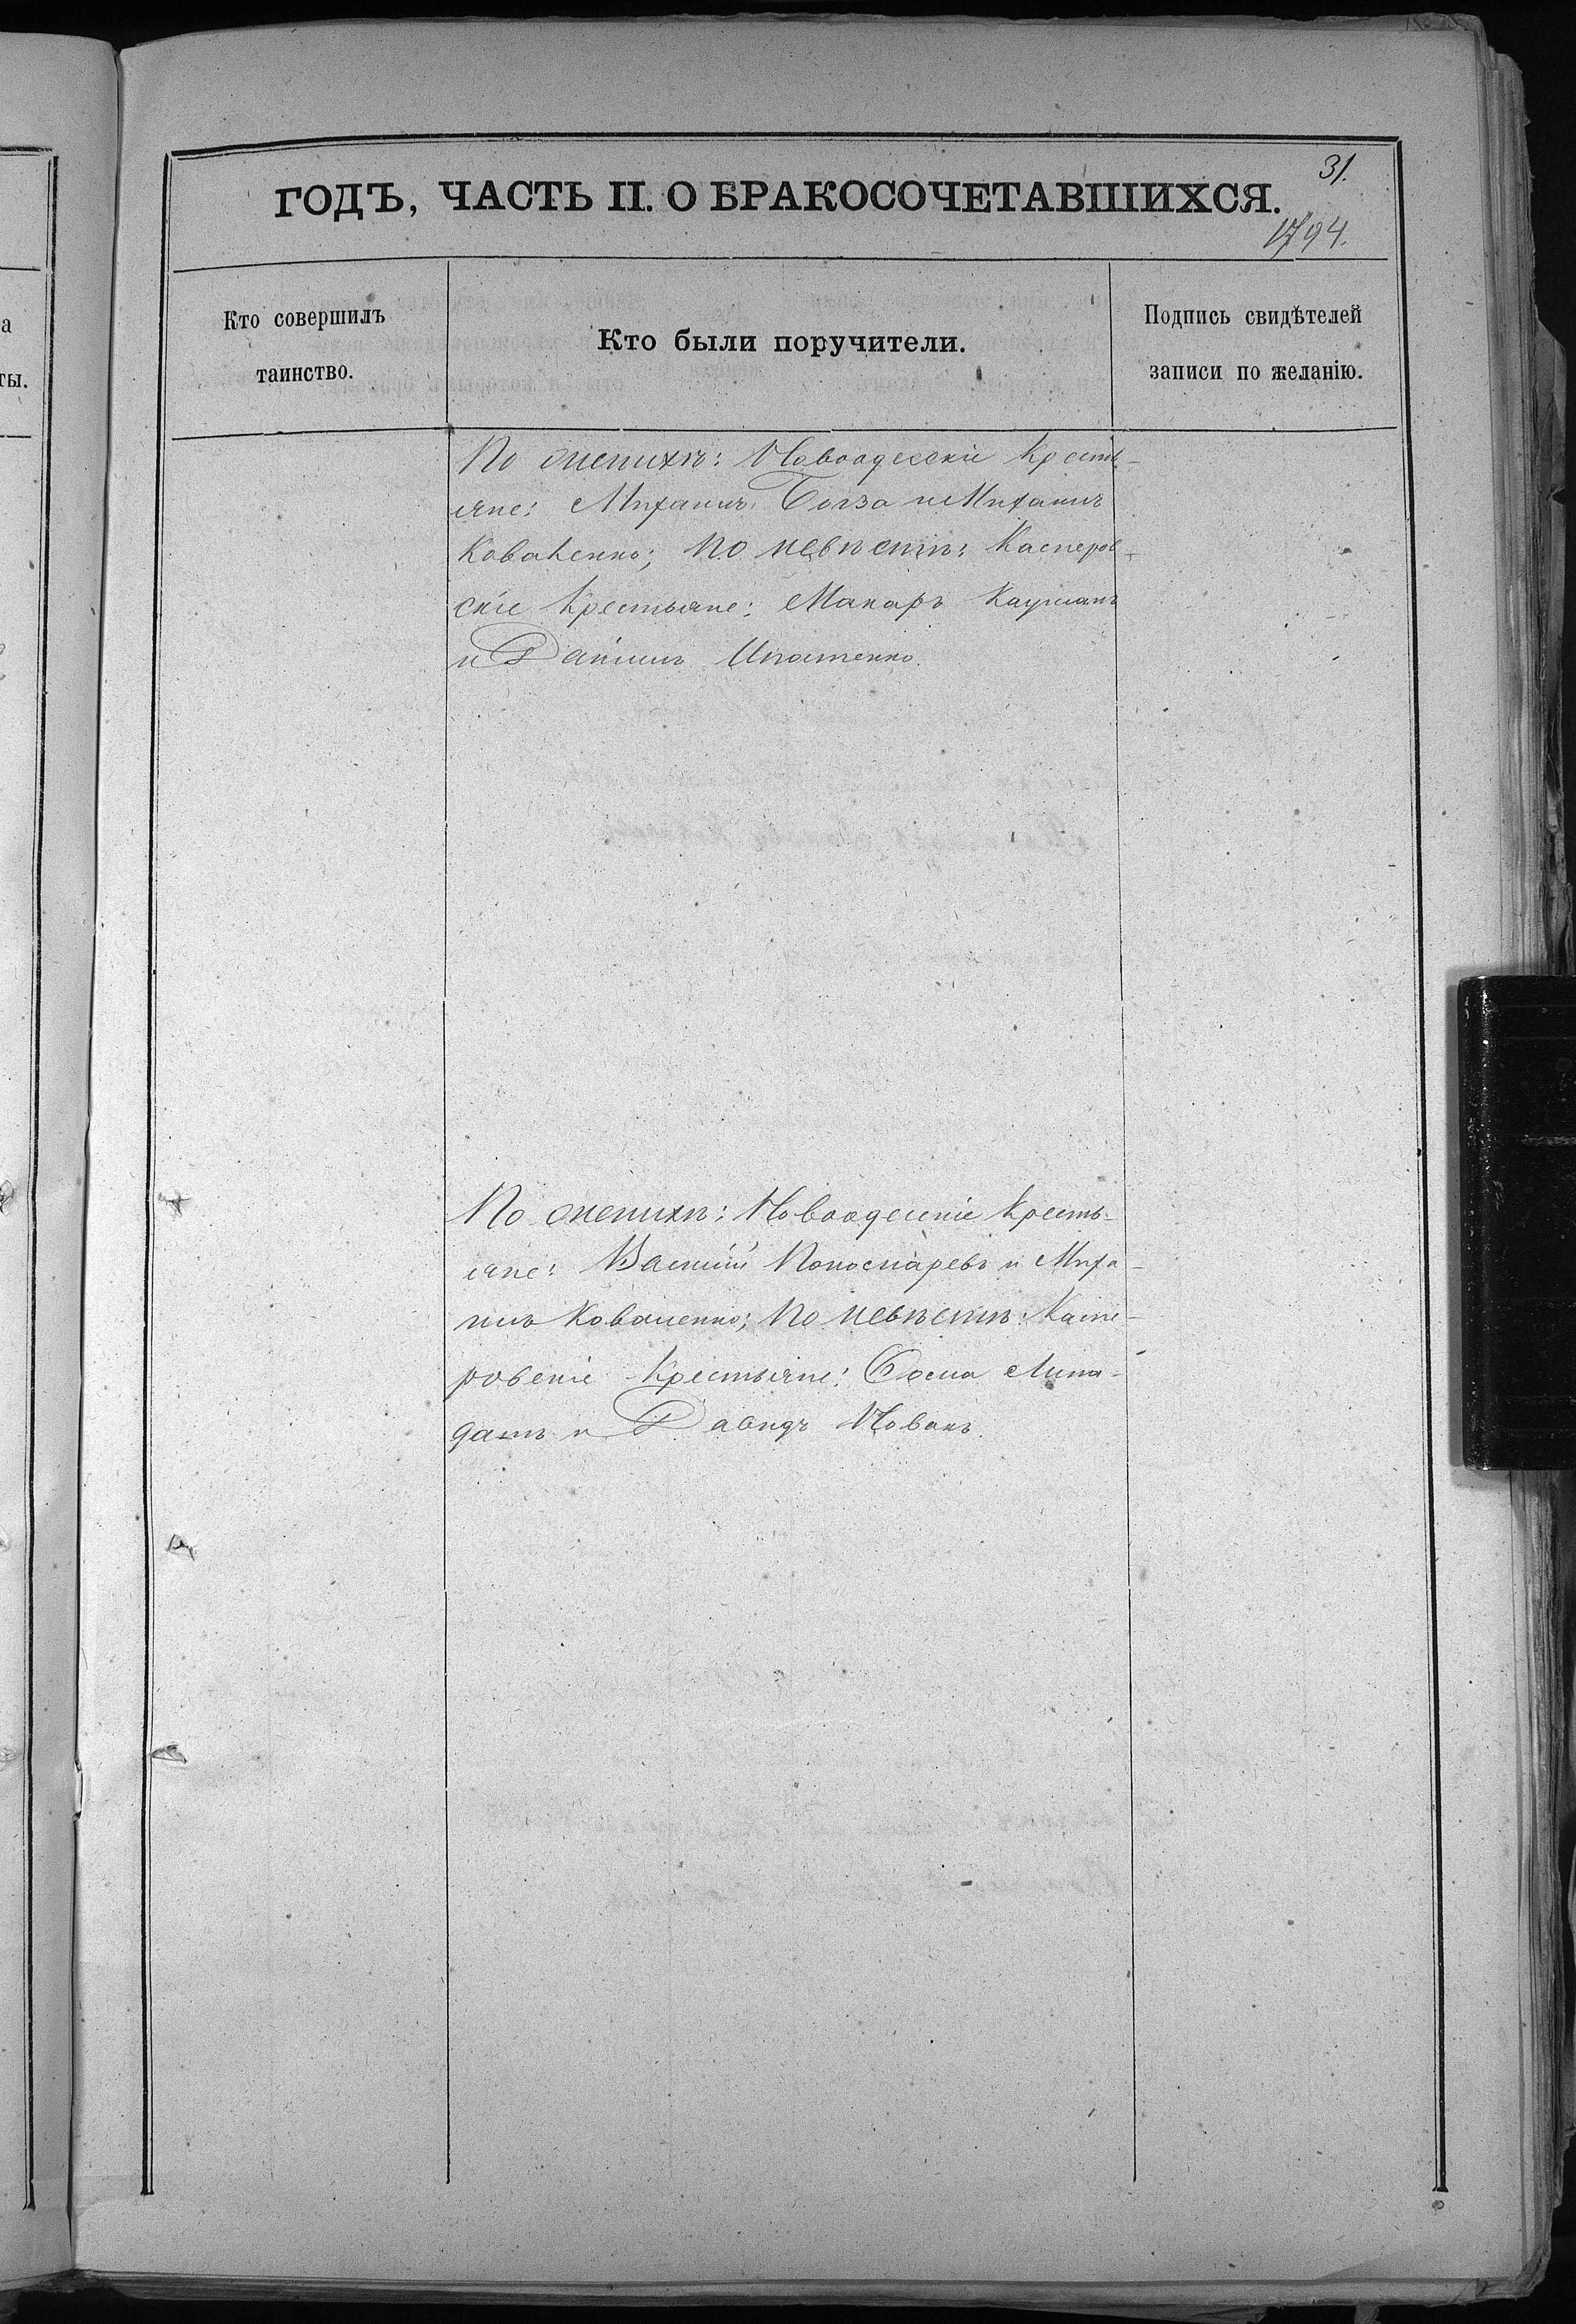 31.
ГОДЪ, ЧАСТЬ II. О БРАКОСОЧЕТАВШИХСЯ.
1794.
Кто совершилъ
таинство.
Кто были поручители.
Подпись свидѣтелей
записи по желанію.
По женихѣ: Новоодесскіе Кресть-
яне: Михаилъ Богза и Михаилъ
Коваленко; по невѣстѣ: Касперов-
скіе Крестьяне: Макаръ Кауманъ
и Даніилъ Ипатенко.
По женихѣ: Новоодесскіе Кресть-
яне: Василій Пономаревъ и Миха-
илъ Коваленко; по невѣстѣ: Каспе-
ровскіе Крестьяне: Фома Липа-
датъ и Давидъ Новакъ.
а
ты.